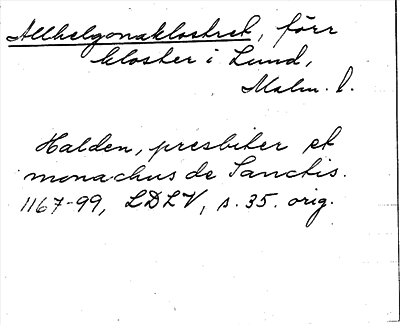 Allhelgonaklostret, förr
kloster i Lund,
Malm. l.
Halden, presbiter et
monachus de Sanctis.
1167-99, LDLV, s. 35. orig.